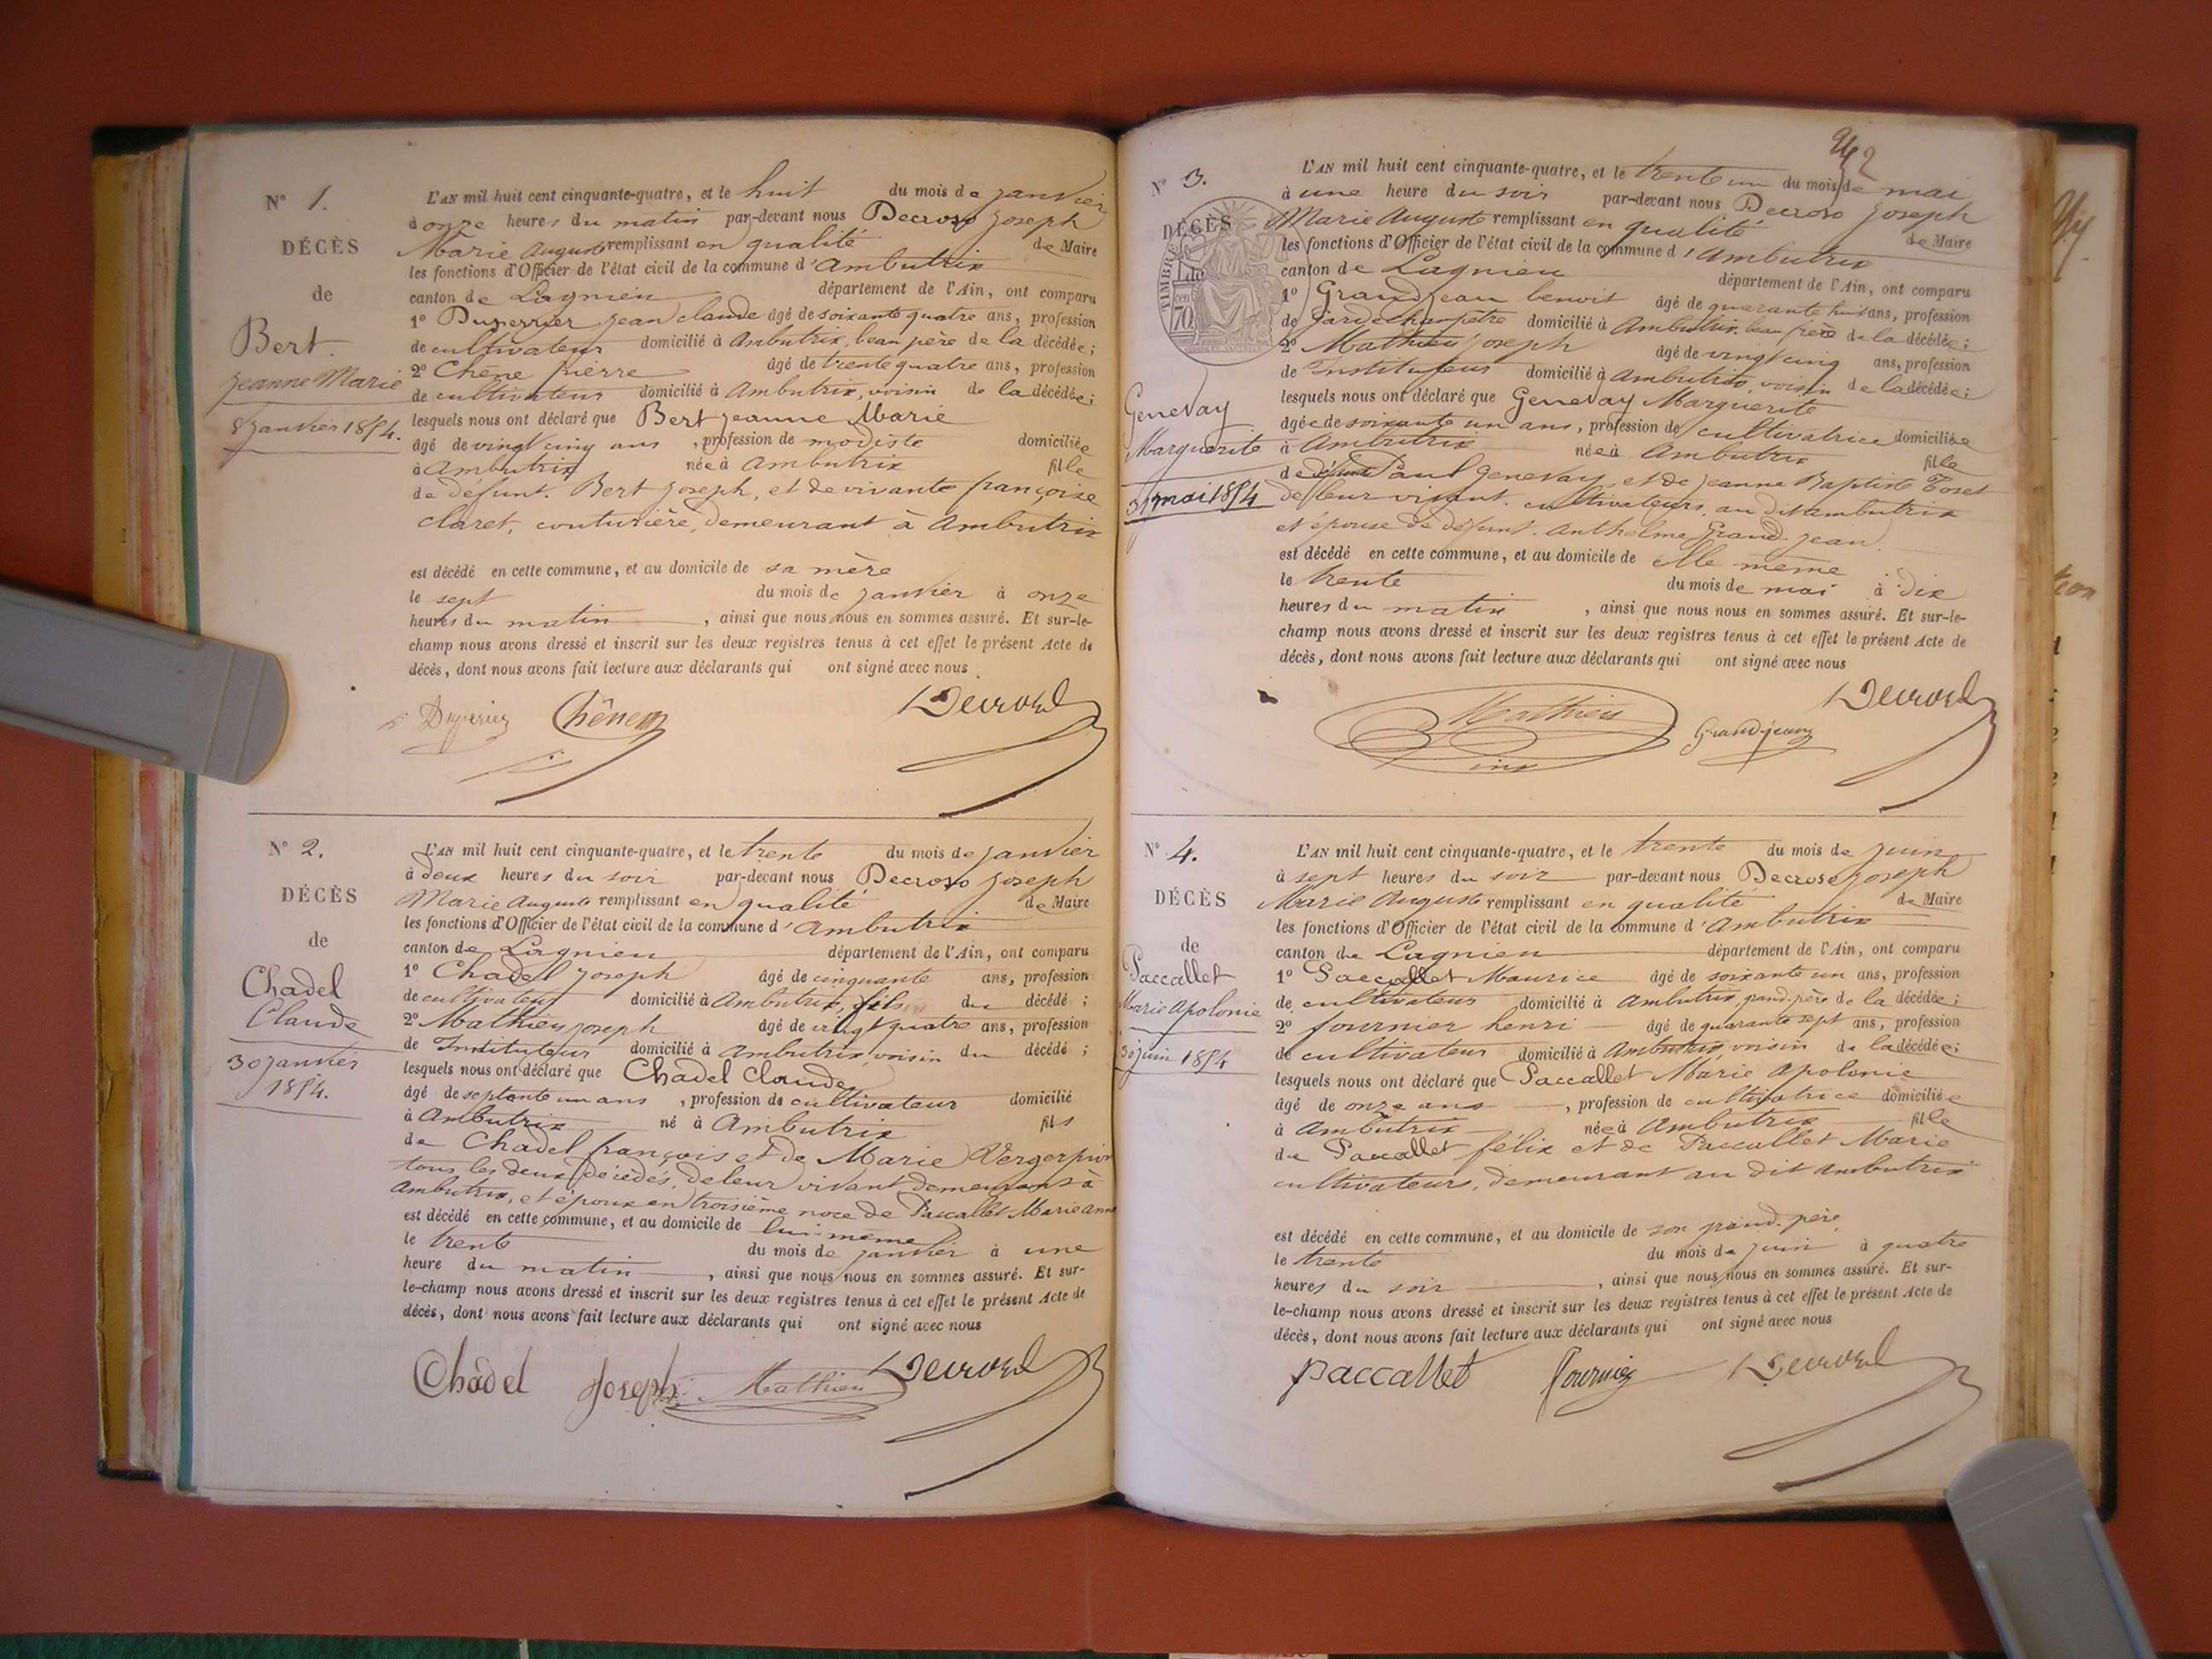 N° 1.
DÉCÈS
de
Bert.
Jeanne Marie
8 janvier 1854.
L'AN mil huit cent cinquante-quatre, et le huit du mois de janvier
à onze heures du matin par-devant nous Decroso Joseph
Marie Auguste remplissant en qualité de Maire
les fonctions d'Officier de l'état civil de la commune d'Ambutrix
canton de Lagnieu département de l'Ain, ont comparu
1° Duperrier jean claude âgé de soixante quatre ans, profession
de cultivateur domicilié à Ambutrix, beau père de la décédée;
2° Chêne pierre âgé de trente quatre ans, profession
de cultivateur domicilié à Ambutrix, voisin de la décédée;
lesquels nous ont déclaré que Bert jeanne Marie
âgé de vingt cinq ans, profession de modiste domiciliée
à Ambutrix née à Ambutrix fille
de défunt. Bert Joseph, et de vivante françoise
claret, couturière, demeurant à Ambutrix
est décédé en cette commune, et au domicile de sa mère
le sept du mois de janvier à onze
heures du matin, ainsi que nous nous en sommes assuré. Et sur-le-
champ nous avons dressé et inscrit sur les deux registres tenus à cet effet le présent Acte de
décès, dont nous avons fait lecture aux déclarants qui ont signé avec nous
Duperier Chêne Decroso
N° 2.
DÉCÈS
de
Chadel
Claude
30 janvier
1854.
L'AN mil huit cent cinquante-quatre, et le trente du mois de janvier
à deux heures du soir par-devant nous Decroso joseph
Marie Auguste remplissant en qualité de Maire
les fonctions d'Officier de l'état civil de la commune d'Ambutrix
canton de Lagnieu département de l'Ain, ont comparu
1° Chadel joseph âgé de cinquante ans, profession
de cultivateur domicilié à Ambutrix, fils du décédé;
2° Mathieu joseph âgé de vingt quatre ans, profession
de Instituteur domicilié à Ambutrix voisin du décédé;
lesquels nous ont déclaré que Chadel Claude
âgé de septante un ans, profession de cultivateur domicilié
à Ambutrix né à Ambutrix fils
de Chadel françois et de Marie
tous les deux décédés, de leur vivant demeurant à
Ambutrix, et époux en troisième noce de Paccallet Marie anne
est décédé en cette commune, et au domicile de lui-même
le trente du mois de janvier à une
heure du matin, ainsi que nous nous en sommes assuré. Et sur-
le-champ nous avons dressé et inscrit sur les deux registres tenus à cet effet le présent Acte de
décès, dont nous avons fait lecture aux déclarants qui ont signé avec nous
Chadel Joseph Mathieu Decroso
N° 3.
DÉCÈS
TIMBRE
70
Genevay
Marguerite
31 mai 1854
L'AN mil huit cent cinquante-quatre, et le trente un du mois de mai
à une heure du soir par-devant nous Decroso Joseph
Marie Auguste remplissant en qualité de Maire
les fonctions d'Officier de l'état civil de la commune d'Ambutrix
canton de Lagnieu département de l'Ain, ont comparu
1° Grandjean benoit âgé de quarante huit ans, profession
de Garde champêtre domicilié à Ambutrix, beau frère de la décédée;
2° Mathieu joseph âgé de vingt cinq ans, profession
de Instituteur domicilié à Ambutrix, voisin de la décédée;
lesquels nous ont déclaré que Genevay Marguerite
âgée de soixante un ans, profession de cultivatrice domiciliée
à Ambutrix née à Ambutrix fille
de défunts Paul Genevay, et de Jeanne Baptiste
de leur vivant cultivateurs, au dit ambutrix
et épouse de défunt Anthelme Grand-jean
est décédé en cette commune, et au domicile de elle même
le trente du mois de mai à dix
heures du matin, ainsi que nous nous en sommes assuré. Et sur-le-
champ nous avons dressé et inscrit sur les deux registres tenus à cet effet le présent Acte de
décès, dont nous avons fait lecture aux déclarants qui ont signé avec nous
Mathieu Grandjean Decroso
N° 4.
DÉCÈS
de
Paccallet
Marie Apolonie
30 juin 1854
L'AN mil huit cent cinquante-quatre, et le trente du mois de juin
à sept heures du soir par-devant nous Decroso joseph
Marie Auguste remplissant en qualité de Maire
les fonctions d'Officier de l'état civil de la commune d'Ambutrix
canton de Lagnieu département de l'Ain, ont comparu
1° Paccallet Maurice âgé de soixante un ans, profession
de cultivateur domicilié à Ambutrix, grand-père de la décédée;
2° fournier henri âgé de quarante sept ans, profession
de cultivateur domicilié à Ambutrix, voisin de la décédée;
lesquels nous ont déclaré que Paccallet Marie Apolonie
âgé de onze ans, profession de cultivatrice domiciliée
à Ambutrix née à Ambutrix fille
de Paccallet félix et de Paccallet Marie
cultivateurs, demeurant au dit ambutrix
est décédé en cette commune, et au domicile de son grand-père
le trente du mois de juin à quatre
heures du soir, ainsi que nous nous en sommes assuré. Et sur-
le-champ nous avons dressé et inscrit sur les deux registres tenus à cet effet le présent Acte de
décès, dont nous avons fait lecture aux déclarants qui ont signé avec nous
paccallet fournier Decroso